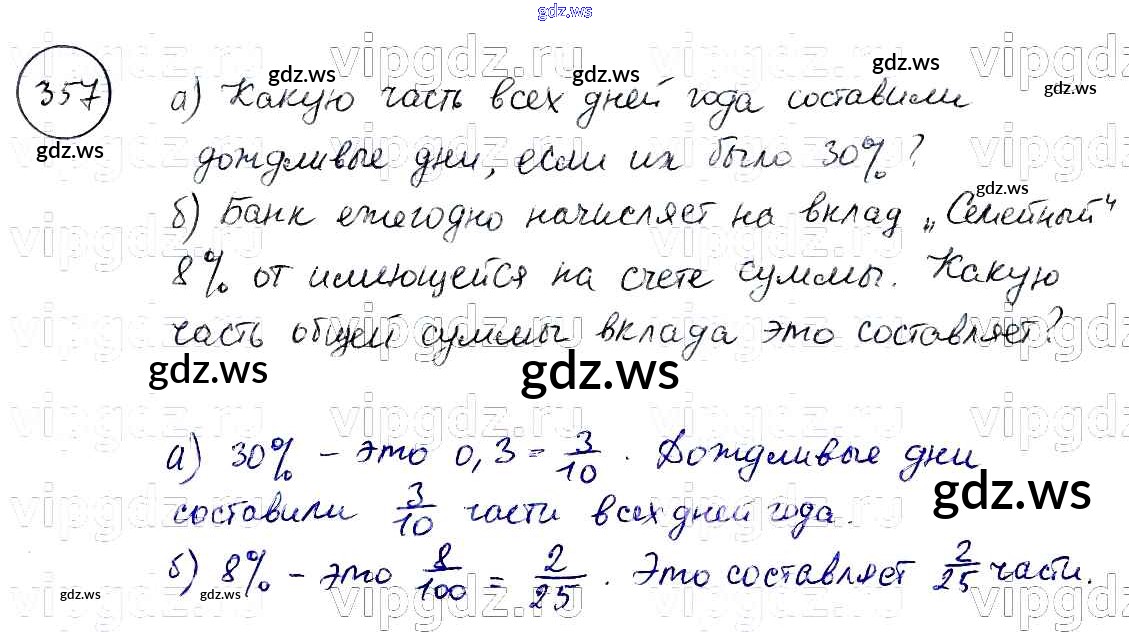 gdz.ws
357
а) Какую часть всех дней года составили
дождливые дни, если их было 30%?
б) Банк ежегодно начисляет на вклад „Семейный“
8% от имеющейся на счете суммы. Какую
часть общей суммы вклада это составляет?
а) 30% – это 0,3 = 3/10. Дождливые дни
составили 3/10 части всех дней года.
б) 8% – это 8/100 = 2/25. Это составляет 2/25 части.
vipgdz.ru
gdz.ws